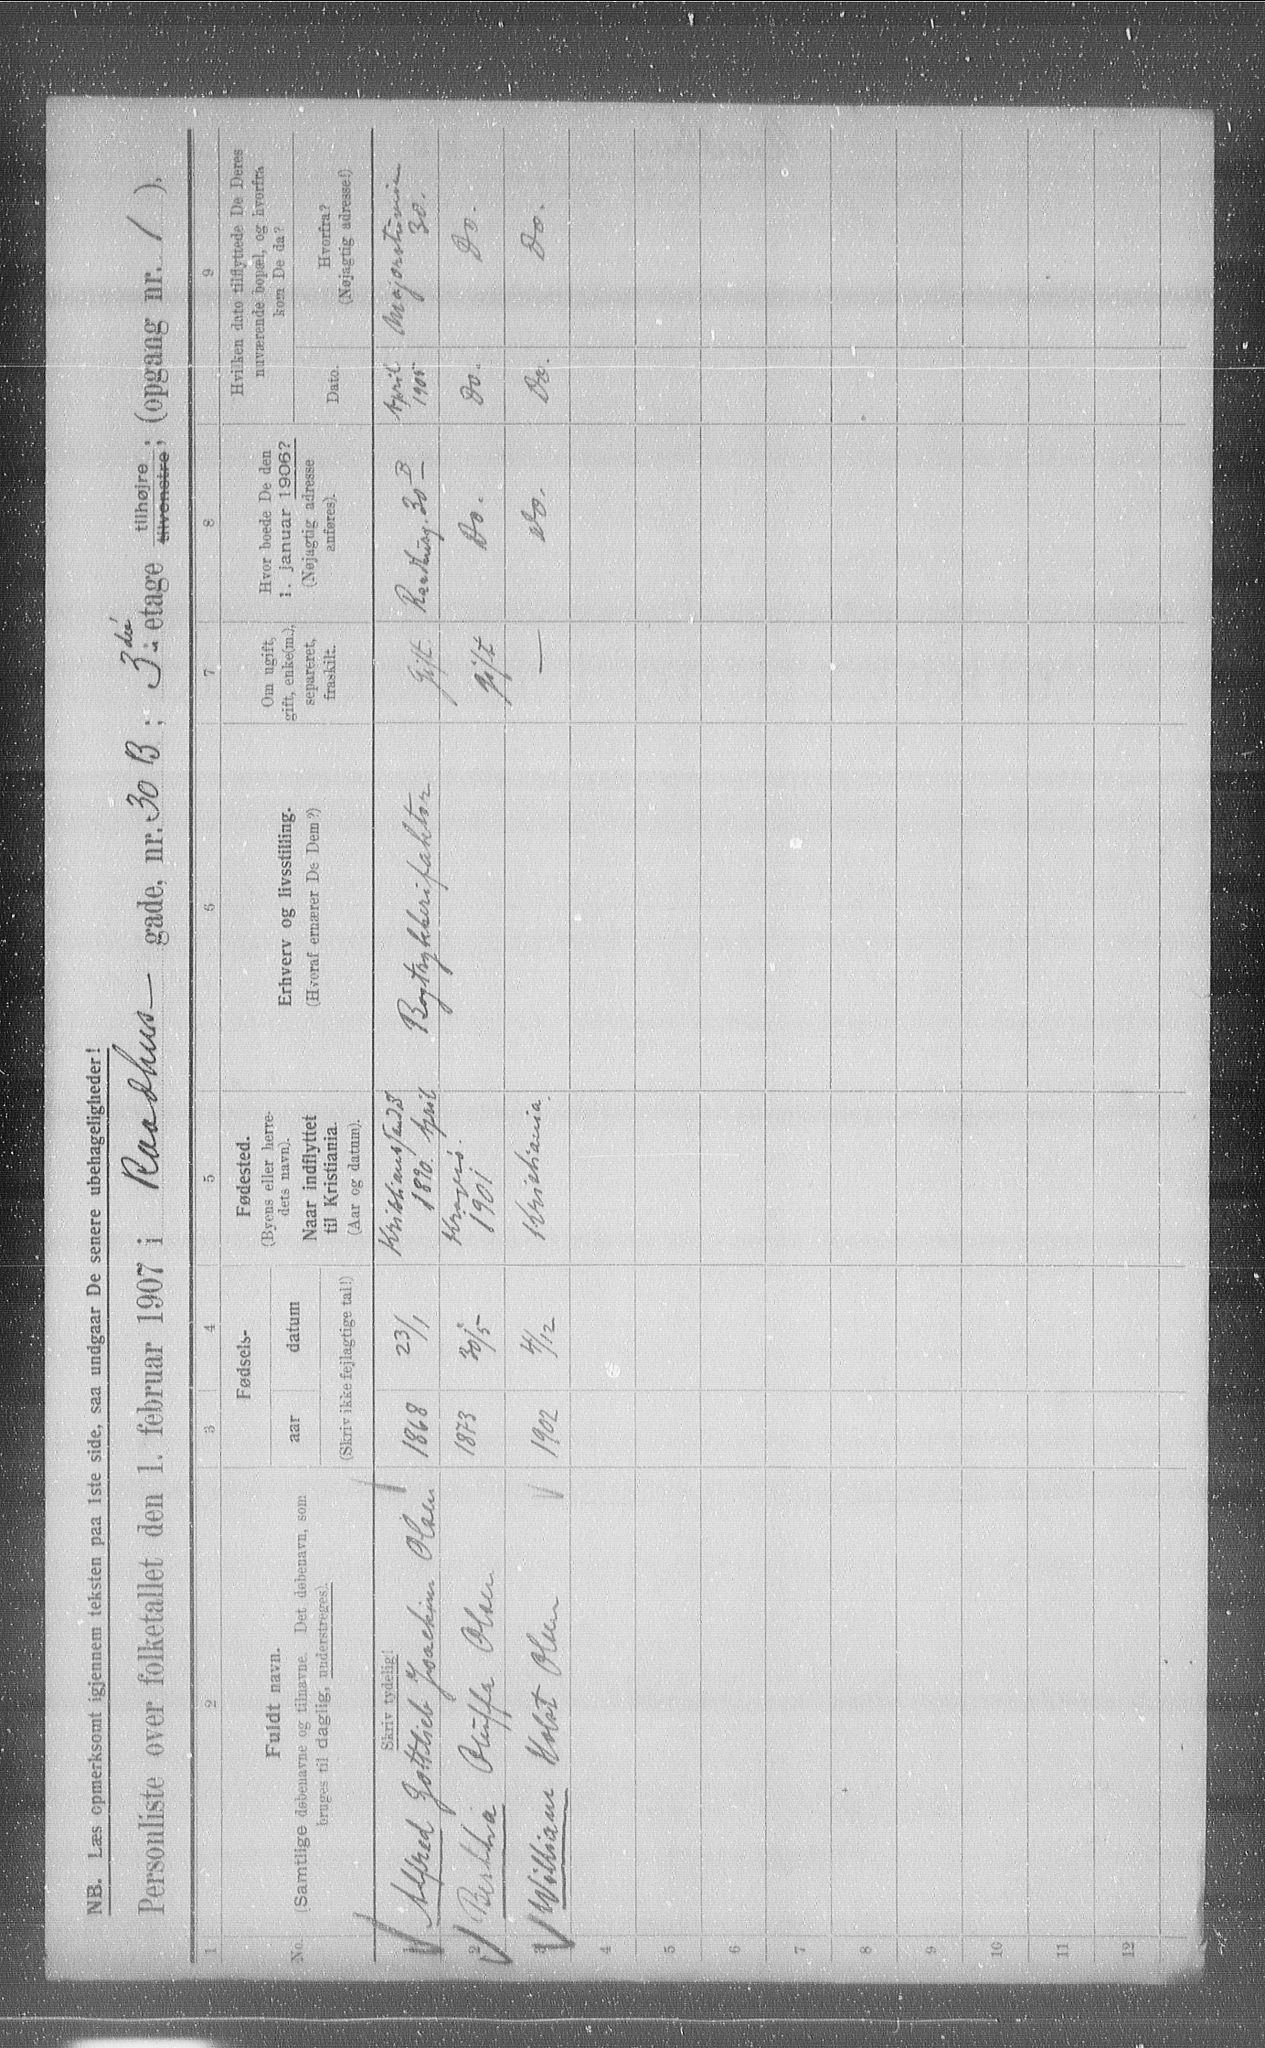 NB. Læs opmerksomt igjennem teksten paa 1ste side, saa undgaar De senere ubehageligheder!
Personliste over folketallet den 1. februar 1907 i Raadhus- gade, nr. 30 B; 3die etage tilhøjre; tilvenstre; (opgang nr. 1).
1 2 3 4 5 6 7 8 9
No.
Fuldt navn.
(Samtlige døbenavne og tilnavne. Det døbenavn, som
bruges til daglig, understreges).
Fødsels-
aar datum
(Skriv ikke fejlagtige tal!)
Fødested.
(Byens eller herre-
dets navn).
Naar indflyttet
til Kristiania.
(Aar og datum).
Erhverv og livsstilling.
(Hvoraf ernærer De Dem?)
Om ugift,
gift, enke(m.),
separeret,
fraskilt.
Hvor boede De den
1. januar 1906?
(Nøjagtig adresse
anføres).
Hvilken dato tilflyttede De Deres
nuværende bopæl, og hvorfra
kom De da?
Dato.
Hvorfra?
(Nøjagtig adresse!)
Skriv tydelig!
1 Alfred Gottlieb Joachim Olsen 1868 23/1 Kristianssand S 1890. April Bogtrykkerifaktor Gift. Raadhusg. 30 B April 1905 Majorstuveien 30.
2 Berthha Oluffa Olsen 1873 30/5 Kragerø. 1901 gift Do. Do. Do.
3 William Holst Olsen 1902 4/12 Kristiania. — Do. Do. Do.
4
5
6
7
8
9
10
11
12